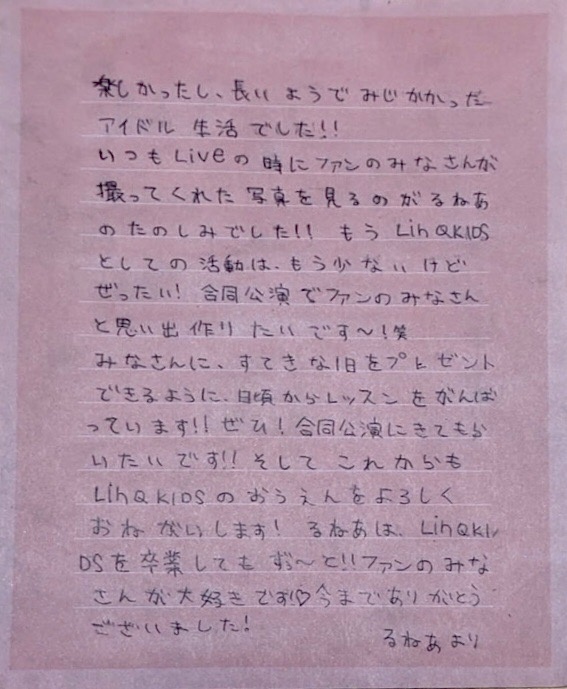 楽しかったし、長いようでみじかかった
アイドル生活でした!!
いつもLiveの時にファンのみなさんが
撮ってくれた写真を見るのがるねあ
のたのしみでした!! もうLinQKIDS
としての活動は、もう少ないけど
ぜったい!合同公演でファンのみなさん
と思い出作りたいです〜!笑
みなさんに、すてきな1日をプレゼント
できるように、日頃からレッスンをがんば
っています!!ぜひ!合同公演にきてもら
いたいです!!そしてこれからも
LinQKIDSのおうえんをよろしく
おねがいします!るねあは、LinQKI
DSを卒業してもず〜と!!ファンのみな
さんが大好きです♡今までありがとう
ございました!
るねあより